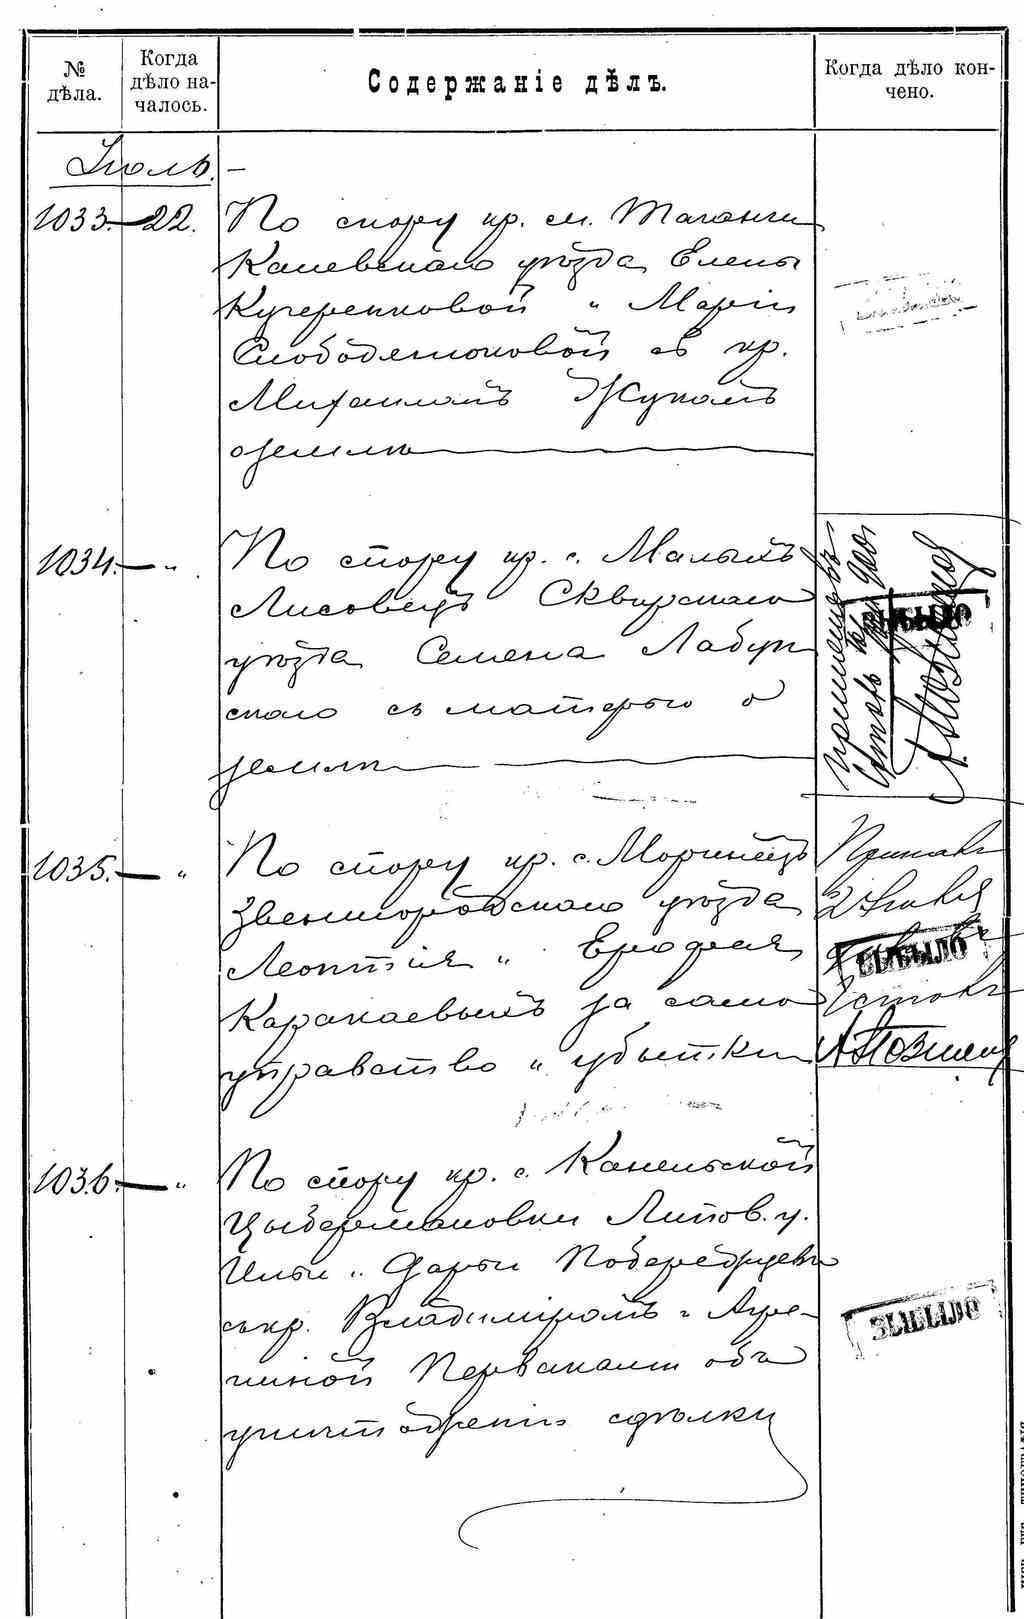 № дѣла.
Когда дѣло началось.
Содержаніе дѣлъ.
Когда дѣло кончено.
Іюль. –
1033. 22. По спору кр. м. Таганчи
Каневскаго уѣзда Елены
Кучеренковой и Маріи
Слободянюковой съ кр.
Михаиломъ Жукомъ
о землѣ
1034. — " По спору кр. с. Малыхъ
Лисовецъ Сквирскаго
уѣзда Семена Лабун
скаго съ матерью о
землѣ
ВЫБЫЛО
1035. — " По спору кр. с. Моринецъ
Звенигородскаго уѣзда
Леонтія и Ерофея
Каракаевымъ за само
управство и убытки
ВЫБЫЛО
1036. — " По спору кр. с. Канельской
Цыбермановки Липов. у.
Ильи и Дарьи Побережцевы
съ кр. Владиміромъ и Агре-
пиной Перваками объ
уничтоженіи сдѣлки
ВЫБЫЛО